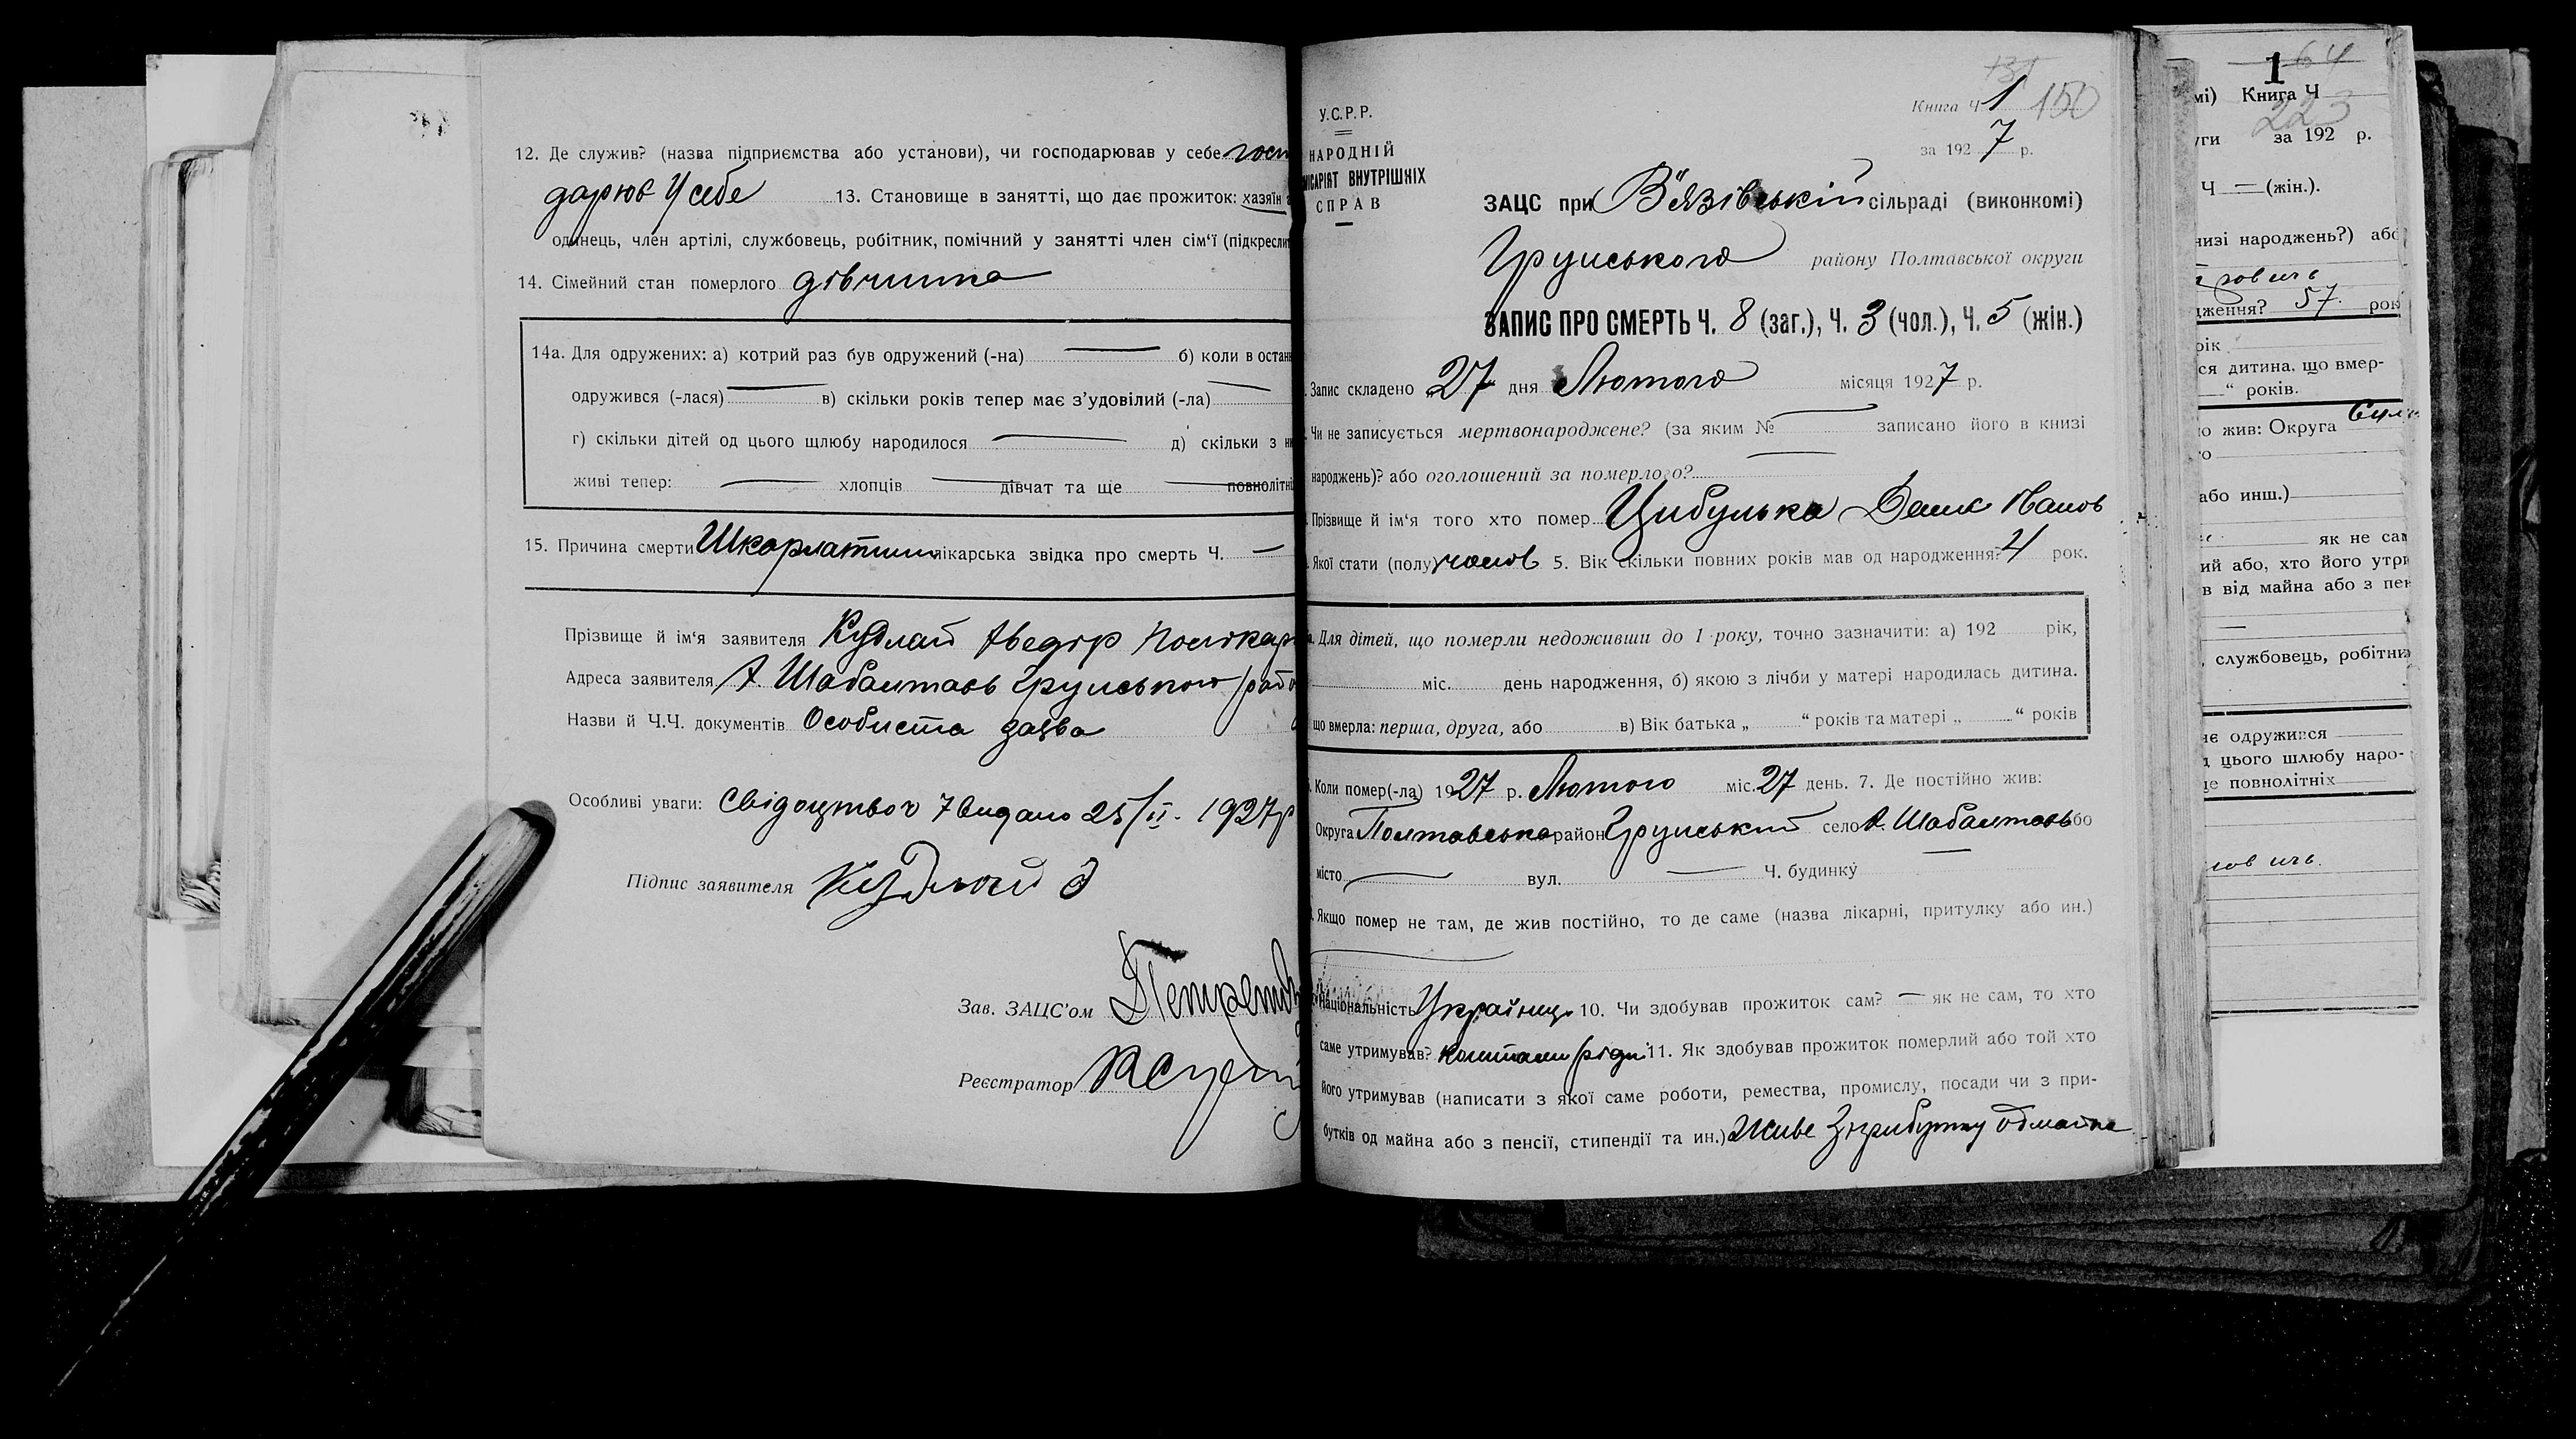 12. Де служив? (назва підприємства або установи), чи господарював у себе госп
дарює у себе 13. Становище в занятті, що дає прожиток: хазяїн
одинець, член артілі, службовець, робітник, помічний у занятті член сім'ї (підкресли
14. Сімейний стан померлого дівчина
14а. Для одружених: а) котрий раз був одружений (-на) — б) коли в остан
одружився (-лася) — в) скільки років тепер має з'удовілий (-ла) —
г) скільки дітей од цього щлюбу народилося — д) скільки з
живі тепер: — хлопців — дівчат та ще — повнолітні
15. Причина смерти Шкорлатини лікарська звідка про смерть Ч. —
Прізвище й ім'я заявителя Кудлай Аведір Полікар
Адреса заявителя Х. Шабалтаєв Грунського рай
Назви й Ч.Ч. документів Особиста заява
Особливі уваги: Свідоцтво 7 видано 25/II. 1927р
Підпис заявителя Кудлай
Зав. ЗАЦС'ом
Реєстратор
У.С.Р.Р.
НАРОДНІЙ
ІСАРІЯТ ВНУТРІШНІХ
СПРАВ
Книга Ч 1 150
за 1927 р.
ЗАЦС при В'язівській сільраді (виконкомі)
Грунського району Полтавської округи
ЗАПИС ПРО СМЕРТЬ Ч. 8 (заг.), Ч. 3 (чол.), Ч. 5 (жін.)
Запис складено 27 дня Лютого місяця 1927 р.
Чи не записується мертвонароджене? (за яким № — записано його в книзі
народжень)? або оголошений за померлого? —
Прізвище й ім'я того хто помер Цибулька Панов
Якої стати (полу) чолов 5. Вік скільки повних років мав од народження? 4 рок.
Для дітей, що померли недоживши до 1 року, точно зазначити: а) 192 рік,
міс. день народження, б) якою з лічби у матері народилась дитина.
що вмерла: перша, друга, або в) Вік батька „ “ років та матері „ “ років
Коли помер(-ла) 1927 р. Лютого міс. 27 день. 7. Де постійно жив:
Округа Полтавська район Грунський село Х. Шабалтаєв бо
місто — вул. — Ч. будинку —
Якщо помер не там, де жив постійно, то де саме (назва лікарні, притулку або ин.)
Національність Українец 10. Чи здобував прожиток сам? — як не сам, то хто
саме утримував? коштами рідн. 11. Як здобував прожиток померлий або той хто
його утримував (написати з якої саме роботи, ремества, промислу, посади чи з при-
бутків од майна або з пенсії, стипендії та ин.) Живе з прибутку од майна
64
1
мі) Книга Ч
223
уги за 192 р.
Ч — (жін.).
низі народжень?) або
дження? 57. рок
рік
ся дитина, що вмер-
“ років.
о жив: Округа
або инш.)
як не сам
ий або, хто його утри
в від майна або з пен
, службовець, робітник
не одружився
д цього шлюбу наро-
ще повнолітніх